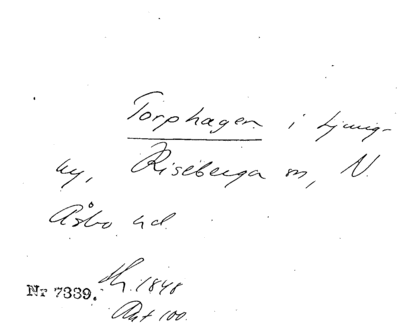 Torphagen i Ljung-
by, Riseberga sn, N.
Åsbo hd.
Nr 7339.
1848
Akt 100.